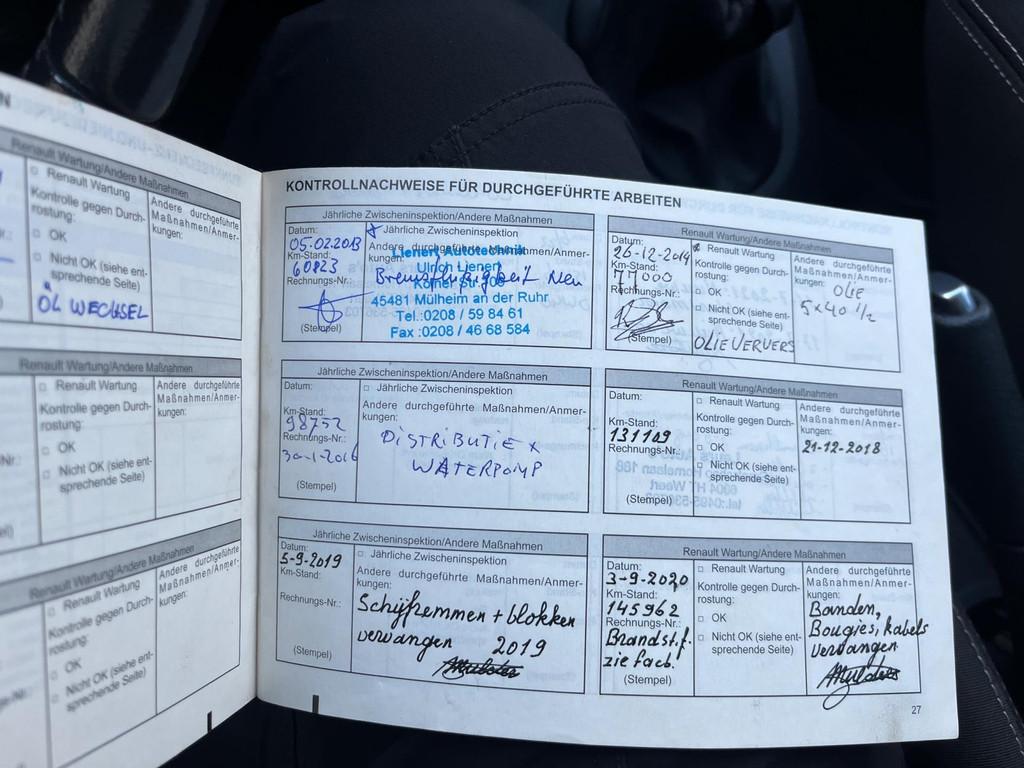 Renault Wartung/Andere Maßnahmen
Renault Wartung
Kontrolle gegen Durch-
rostung:
OK
Nicht OK (siehe ent-
sprechende Seite)
Andere durchgeführte
Maßnahmen/Anmer-
kungen:
ÖL WECHSEL
Renault Wartung/Andere Maßnahmen
Renault Wartung
Kontrolle gegen Durch-
rostung:
OK
Nicht OK (siehe ent-
sprechende Seite)
Andere durchgeführte
Maßnahmen/Anmer-
kungen:
Renault Wartung/Andere Maßnahmen
Renault Wartung
Kontrolle gegen Durch-
rostung:
OK
Nicht OK (siehe ent-
sprechende Seite)
Andere durchgeführte
Maßnahmen/Anmer-
kungen:
KONTROLLNACHWEISE FÜR DURCHGEFÜHRTE ARBEITEN
Jährliche Zwischeninspektion/Andere Maßnahmen
Datum:
05.02.2013
Km-Stand:
60823
Rechnungs-Nr.:
(Stempel)
Jährliche Zwischeninspektion
Andere durchgeführte Maßnahmen/Anmer-
kungen:
Bremsflüßigkeit Neu
Lienert Autotechnik
Ulrich Lienert
Kölner Str.
45481 Mülheim an der Ruhr
Tel.:0208 / 59 84 61
Fax :0208 / 46 68 584
Renault Wartung/Andere Maßnahmen
Datum:
26-12-2014
Km-Stand:
77000
Rechnungs-Nr.:
(Stempel)
Renault Wartung
Kontrolle gegen Durch-
rostung:
OK
Nicht OK (siehe ent-
sprechende Seite)
OLIEVERVERS
Andere durchgeführte
Maßnahmen/Anmer-
kungen:
OLIE
5x40 1/2
Jährliche Zwischeninspektion/Andere Maßnahmen
Datum:
Km-Stand:
98752
Rechnungs-Nr.:
30-1-2016
(Stempel)
Jährliche Zwischeninspektion
Andere durchgeführte Maßnahmen/Anmer-
kungen:
DISTRIBUTIE x
WATERPOMP
Renault Wartung/Andere Maßnahmen
Datum:
Km-Stand:
131109
Rechnungs-Nr.:
(Stempel)
Renault Wartung
Kontrolle gegen Durch-
rostung:
OK
Nicht OK (siehe ent-
sprechende Seite)
Andere durchgeführte
Maßnahmen/Anmer-
kungen:
21-12-2018
Jährliche Zwischeninspektion/Andere Maßnahmen
Datum:
5-9-2019
Km-Stand:
Rechnungs-Nr.:
(Stempel)
Jährliche Zwischeninspektion
Andere durchgeführte Maßnahmen/Anmer-
kungen:
Schijfremmen + blokken
vervangen 2019
Renault Wartung/Andere Maßnahmen
Datum:
3-9-2020
Km-Stand:
145962
Rechnungs-Nr.:
Brandst.f.
zie fact.
(Stempel)
Renault Wartung
Kontrolle gegen Durch-
rostung:
OK
Nicht OK (siehe ent-
sprechende Seite)
Andere durchgeführte
Maßnahmen/Anmer-
kungen:
Banden,
Bougies, kabels
vervangen
27